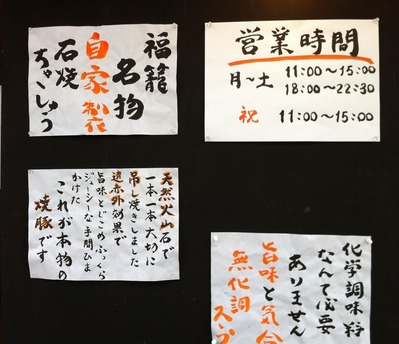 福籠
名物
自家製
石焼
ちゃーしゅう
営業時間
月〜土 11:00〜15:00
18:00〜22:30
祝 11:00〜15:00
天然火山石で
一本一本大切に
吊し焼きしました
遠赤外効果で
旨味とじこめふっくら
ジューシーな手間ひま
かけた
これが本物の
焼豚です
化学調味料
なんて必要
ありません
旨味と気合
無化調
スープ